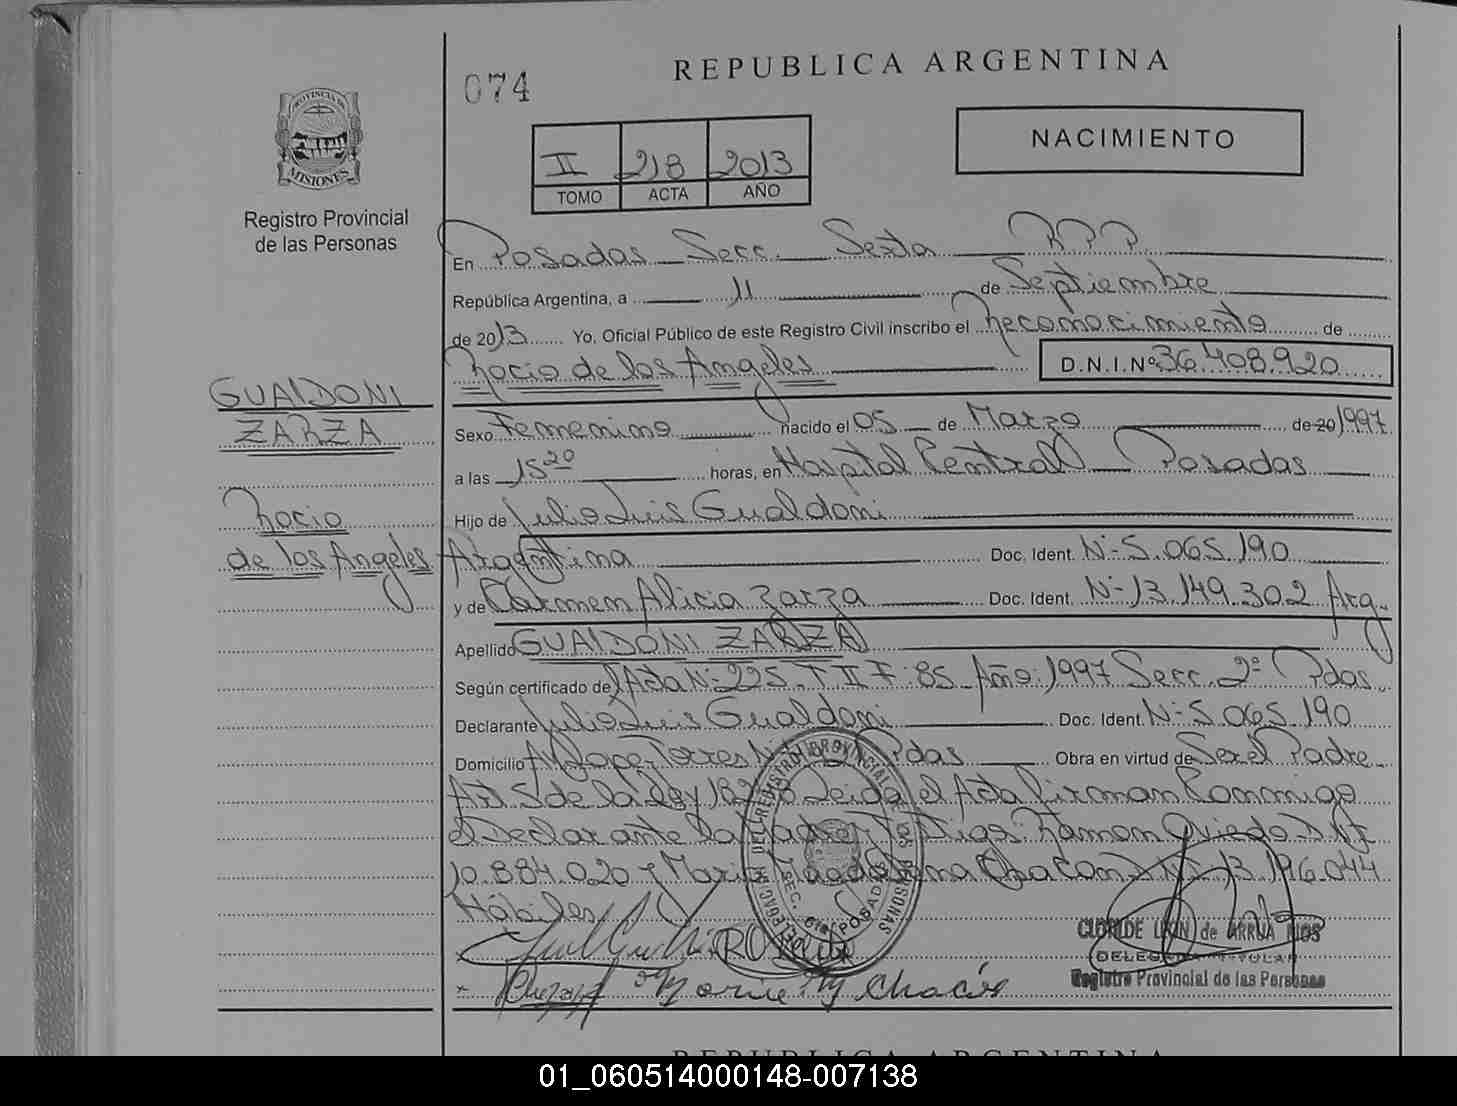 074
REPUBLICA ARGENTINA
NACIMIENTO
PROVINCIA DE
MISIONES
Registro Provincial
de las Personas
II 218 2013
TOMO ACTA AÑO
En Posadas Secc. Sexta R P P
República Argentina, a 11 de Septiembre
de 2013 Yo, Oficial Público de este Registro Civil inscribo el Reconocimiento de
Rocio de los Angeles D.N.I.Nº 36.408.920
GUALDONI
ZARZA
Rocio
de los Angeles
Sexo Femenino nacido el 05 de Marzo de 20 1997
a las 15 20 horas, en Hospital Central Posadas
Hijo de Julio Luis Gualdoni
Argentina Doc. Ident. Nº 5.065.190
y de Carmen Alicia Zarza Doc. Ident. Nº 13.149.302 Arg.
Apellido GUALDONI ZARZA
Según certificado de Acta Nº 225 T II F 85 Año 1997 Secc. 2ª Pdas
Declarante Julio Luis Gualdoni Doc. Ident. Nº 5.065.190
Domicilio Torres Pdas Obra en virtud de Ser el Padre
Art 5 de la Ley Leida el Acta firman Conmigo
el Declarante la Madre y Tgos. Ramon Oviedo D Nº
10.884.020 y Maria Magdalena Chacon D Nº 13.196.044
Hábiles
CLORILDE LEON de ARRUA RIOS
DELEGADA TITULAR
Registro Provincial de las Personas
Chacón
DELEGAC. DEL REGISTRO PROVINCIAL DE LAS PERSONAS
SEC. 6ta POSADAS
REPUBLICA ARGENTINA
01_060514000148-007138